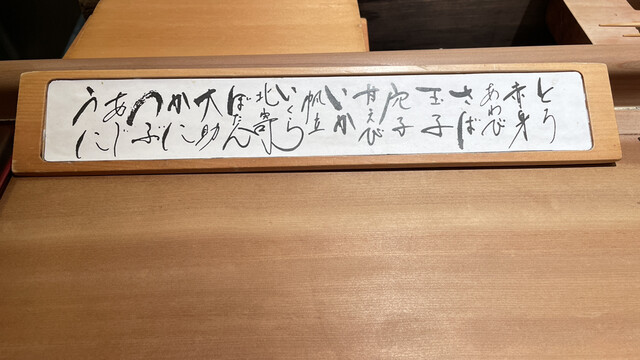 とろ
赤身
あわび
さば
玉子
穴子
甘えび
いか
帆立
いくら
北寄
ぼたん
大助
かに
のぶ
あじ
うに